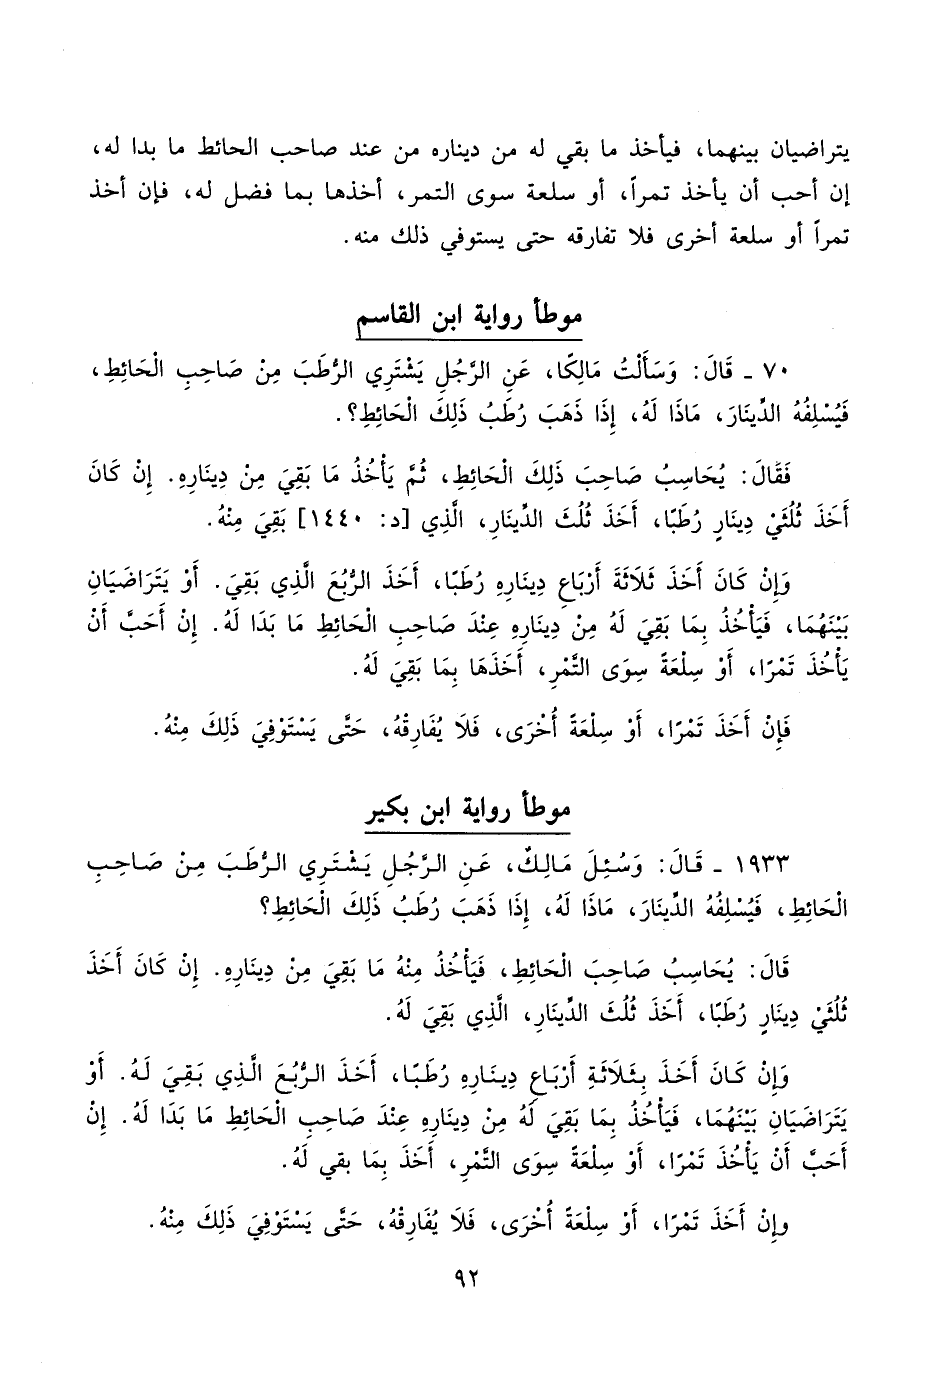 يتراضيان بينهما، فيأخذ ما بقي له من ديناره من عند صاحب الحائط ما بدا له،
إن أحب أن يأخذ تمراً، أو سلعة سوى التمر، أخذها بما فضل له، فإن أخذ
تمراً أو سلعة أخرى فلا تفارقه حتى يستوفي ذلك منه.
موطأ رواية ابن القاسم
٧٠ ـ قَالَ: وَسَأَلْتُ مَالِكًا، عَنِ الرَّجُلِ يَشْتَرِي الرُّطَبَ مِنْ صَاحِبِ الْحَائِطِ،
فَيُسْلِفُهُ الدِّينَارَ، مَاذَا لَهُ، إِذَا ذَهَبَ رُطَبُ ذَلِكَ الْحَائِطِ؟.
فَقَالَ: يُحَاسِبُ صَاحِبَ ذَلِكَ الْحَائِطِ، ثُمَّ يَأْخُذُ مَا بَقِيَ مِنْ دِينَارِهِ. إِنْ كَانَ
أَخَذَ ثُلُثَيْ دِينَارٍ رُطَبًا، أَخَذَ ثُلُثَ الدِّينَارِ، الَّذِي [د: ١٤٤٠] بَقِيَ مِنْهُ.
وَإِنْ كَانَ أَخَذَ ثَلَاثَةَ أَرْبَاعِ دِينَارِهِ رُطَبًا، أَخَذَ الرُّبُعَ الَّذِي بَقِيَ. أَوْ يَتَرَاضَيَانِ
بَيْنَهُمَا، فَيَأْخُذُ بِمَا بَقِيَ لَهُ مِنْ دِينَارِهِ عِنْدَ صَاحِبِ الْحَائِطِ مَا بَدَا لَهُ. إِنْ أَحَبَّ أَنْ
يَأْخُذَ تَمْرًا، أَوْ سِلْعَةً سِوَى التَّمْرِ، أَخَذَهَا بِمَا بَقِيَ لَهُ.
فَإِنْ أَخَذَ تَمْرًا، أَوْ سِلْعَةً أُخْرَى، فَلَا يُفَارِقْهُ، حَتَّى يَسْتَوْفِيَ ذَلِكَ مِنْهُ.
موطأ رواية ابن بكير
١٩٣٣ ـ قَالَ: وَسُئِلَ مَالِكٌ، عَنِ الرَّجُلِ يَشْتَرِي الرُّطَبَ مِنْ صَاحِبِ
الْحَائِطِ، فَيُسْلِفُهُ الدِّينَارَ، مَاذَا لَهُ، إِذَا ذَهَبَ رُطَبُ ذَلِكَ الْحَائِطِ؟
قَالَ: يُحَاسِبُ صَاحِبَ الْحَائِطِ، فَيَأْخُذُ مِنْهُ مَا بَقِيَ مِنْ دِينَارِهِ. إِنْ كَانَ أَخَذَ
ثُلُثَيْ دِينَارٍ رُطَبًا، أَخَذَ ثُلُثَ الدِّينَارِ، الَّذِي بَقِيَ لَهُ.
وَإِنْ كَانَ أَخَذَ بِثَلَاثَةِ أَرْبَاعِ دِينَارِهِ رُطَبًا، أَخَذَ الرُّبُعَ الَّذِي بَقِيَ لَهُ. أَوْ
يَتَرَاضَيَانِ بَيْنَهُمَا، فَيَأْخُذُ بِمَا بَقِيَ لَهُ مِنْ دِينَارِهِ عِنْدَ صَاحِبِ الْحَائِطِ مَا بَدَا لَهُ. إِنْ
أَحَبَّ أَنْ يَأْخُذَ تَمْرًا، أَوْ سِلْعَةً سِوَى التَّمْرِ، أَخَذَ بِمَا بقي لَهُ.
وإِنْ أَخَذَ تَمْرًا، أَوْ سِلْعَةً أُخْرَى، فَلَا يُفَارِقْهُ، حَتَّى يَسْتَوْفِيَ ذَلِكَ مِنْهُ.
٩٢